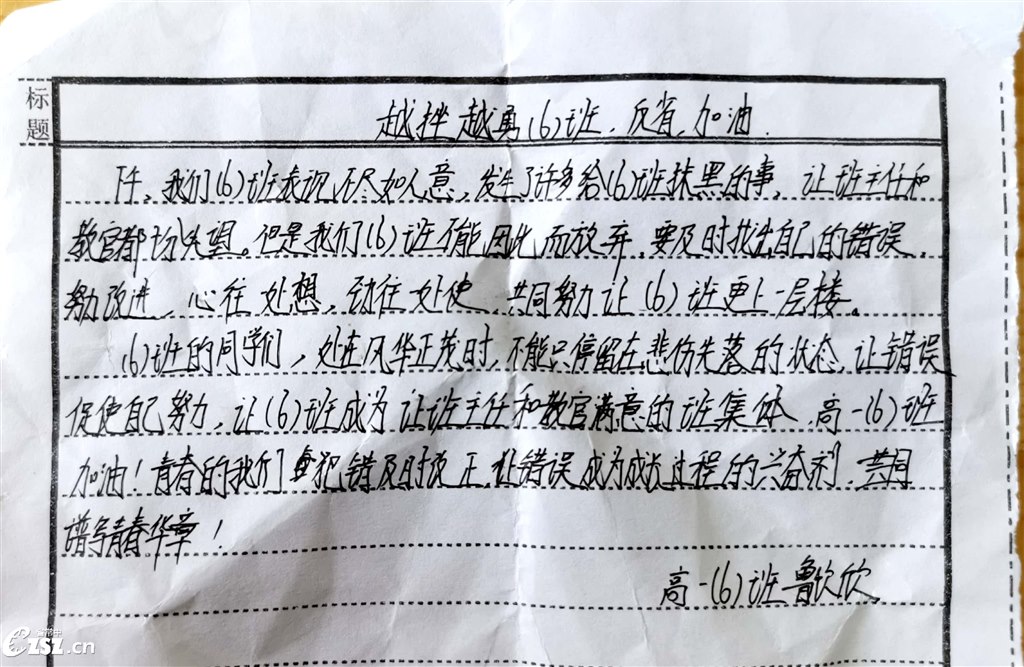 标题
越挫越勇(6)班,反省,加油.
下午,我们(6)班表现不尽如人意,发生了许多给(6)班抹黑的事,让班主任和
教官都十分失望。但是我们(6)班不能因此而放弃,要及时找出自己的错误,
努力改进,心往一处想,劲往一处使,共同努力让(6)班更上一层楼。
(6)班的同学们,处在风华正茂时,不能只停留在悲伤失落的状态,让错误
促使自己努力,让(6)班成为让班主任和教官满意的班集体,高一(6)班
加油!青春的我们犯错及时改正,让错误成为成长过程的兴奋剂,共同
谱写青春华章!
高一(6)班 鲁欣欣
zsz.cn